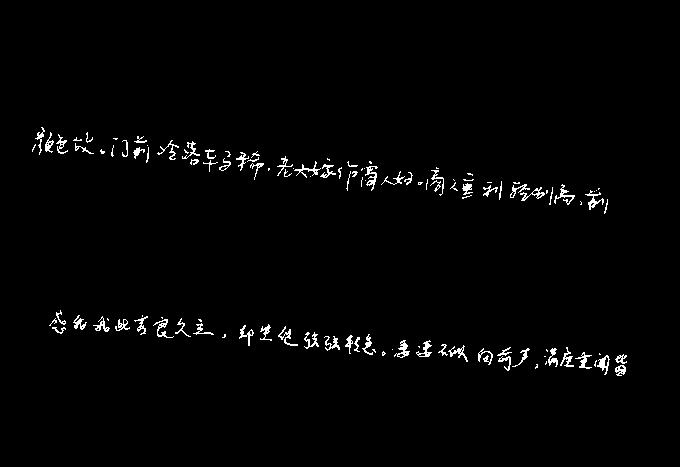 颜色故。门前冷落车马稀，老大嫁作商人妇。商人重利轻别离，前
感我我此言良久立，却坐促弦弦转急。凄凄不似向前声，满座重闻皆